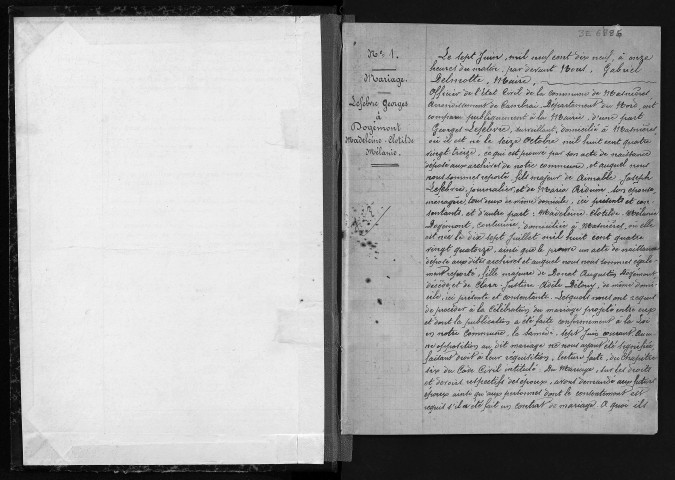 3E 6886
N° 1.
Mariage.
Lefebvre Georges
à
Dogimont
Madeleine-Clotilde
Mélanie.
Le sept Juin, mil neuf cent dix neuf, à onze
heures du matin, par devant Nous, Gabriel
Delmotte, Maire,
Officier de l'état Civil de la commune de Masnières
Arrondissement de Cambrai, Département du Nord, ont
comparu publiquement à la Mairie, d'une part
Georges Lefebvre, surveillant, domicilié à Masnières
où il est né le seize Octobre mil huit cent quatre
vingt treize, ce qui est prouvé par son acte de naissance
déposé aux archives de notre commune, et auquel nous
nous sommes reportés, fils majeur de Aimable Joseph
Lefebvre, journalier, et de Maria son épouse
ménagère, tous deux de même domicile, ici présents et con-
sentants, et d'autre part, Madeleine Clotilde Mélanie
Dogimont, couturière, domiciliée à Masnières, où elle
est née le dix sept Juillet mil huit cent quatre
vingt quatorze, ainsi que le prouve un acte de naissance
déposé aux dites archives et auquel nous nous sommes égale-
ment reportés, fille majeure de Donat Augustin Dogimont
décédé, et de Clara Justine Adèle Delouy, de même domi-
cile, ici présente et consentante. Lesquels nous ont requis
de procéder à la célébration du mariage projeté entre eux
et dont la publication a été faite conformément à la Loi
en notre commune, le sept Juin courant. Aucu-
ne opposition au dit mariage ne nous ayant été signifiée,
faisant droit à leur réquisition, lecture faite, du chapitre
six du Code Civil intitulé Du Mariage, sur les droits
et devoirs respectifs des époux, avons demandé aux futurs
époux ainsi qu'aux personnes dont le consentement est
requis s'il a été fait un contrat de mariage. A quoi ils